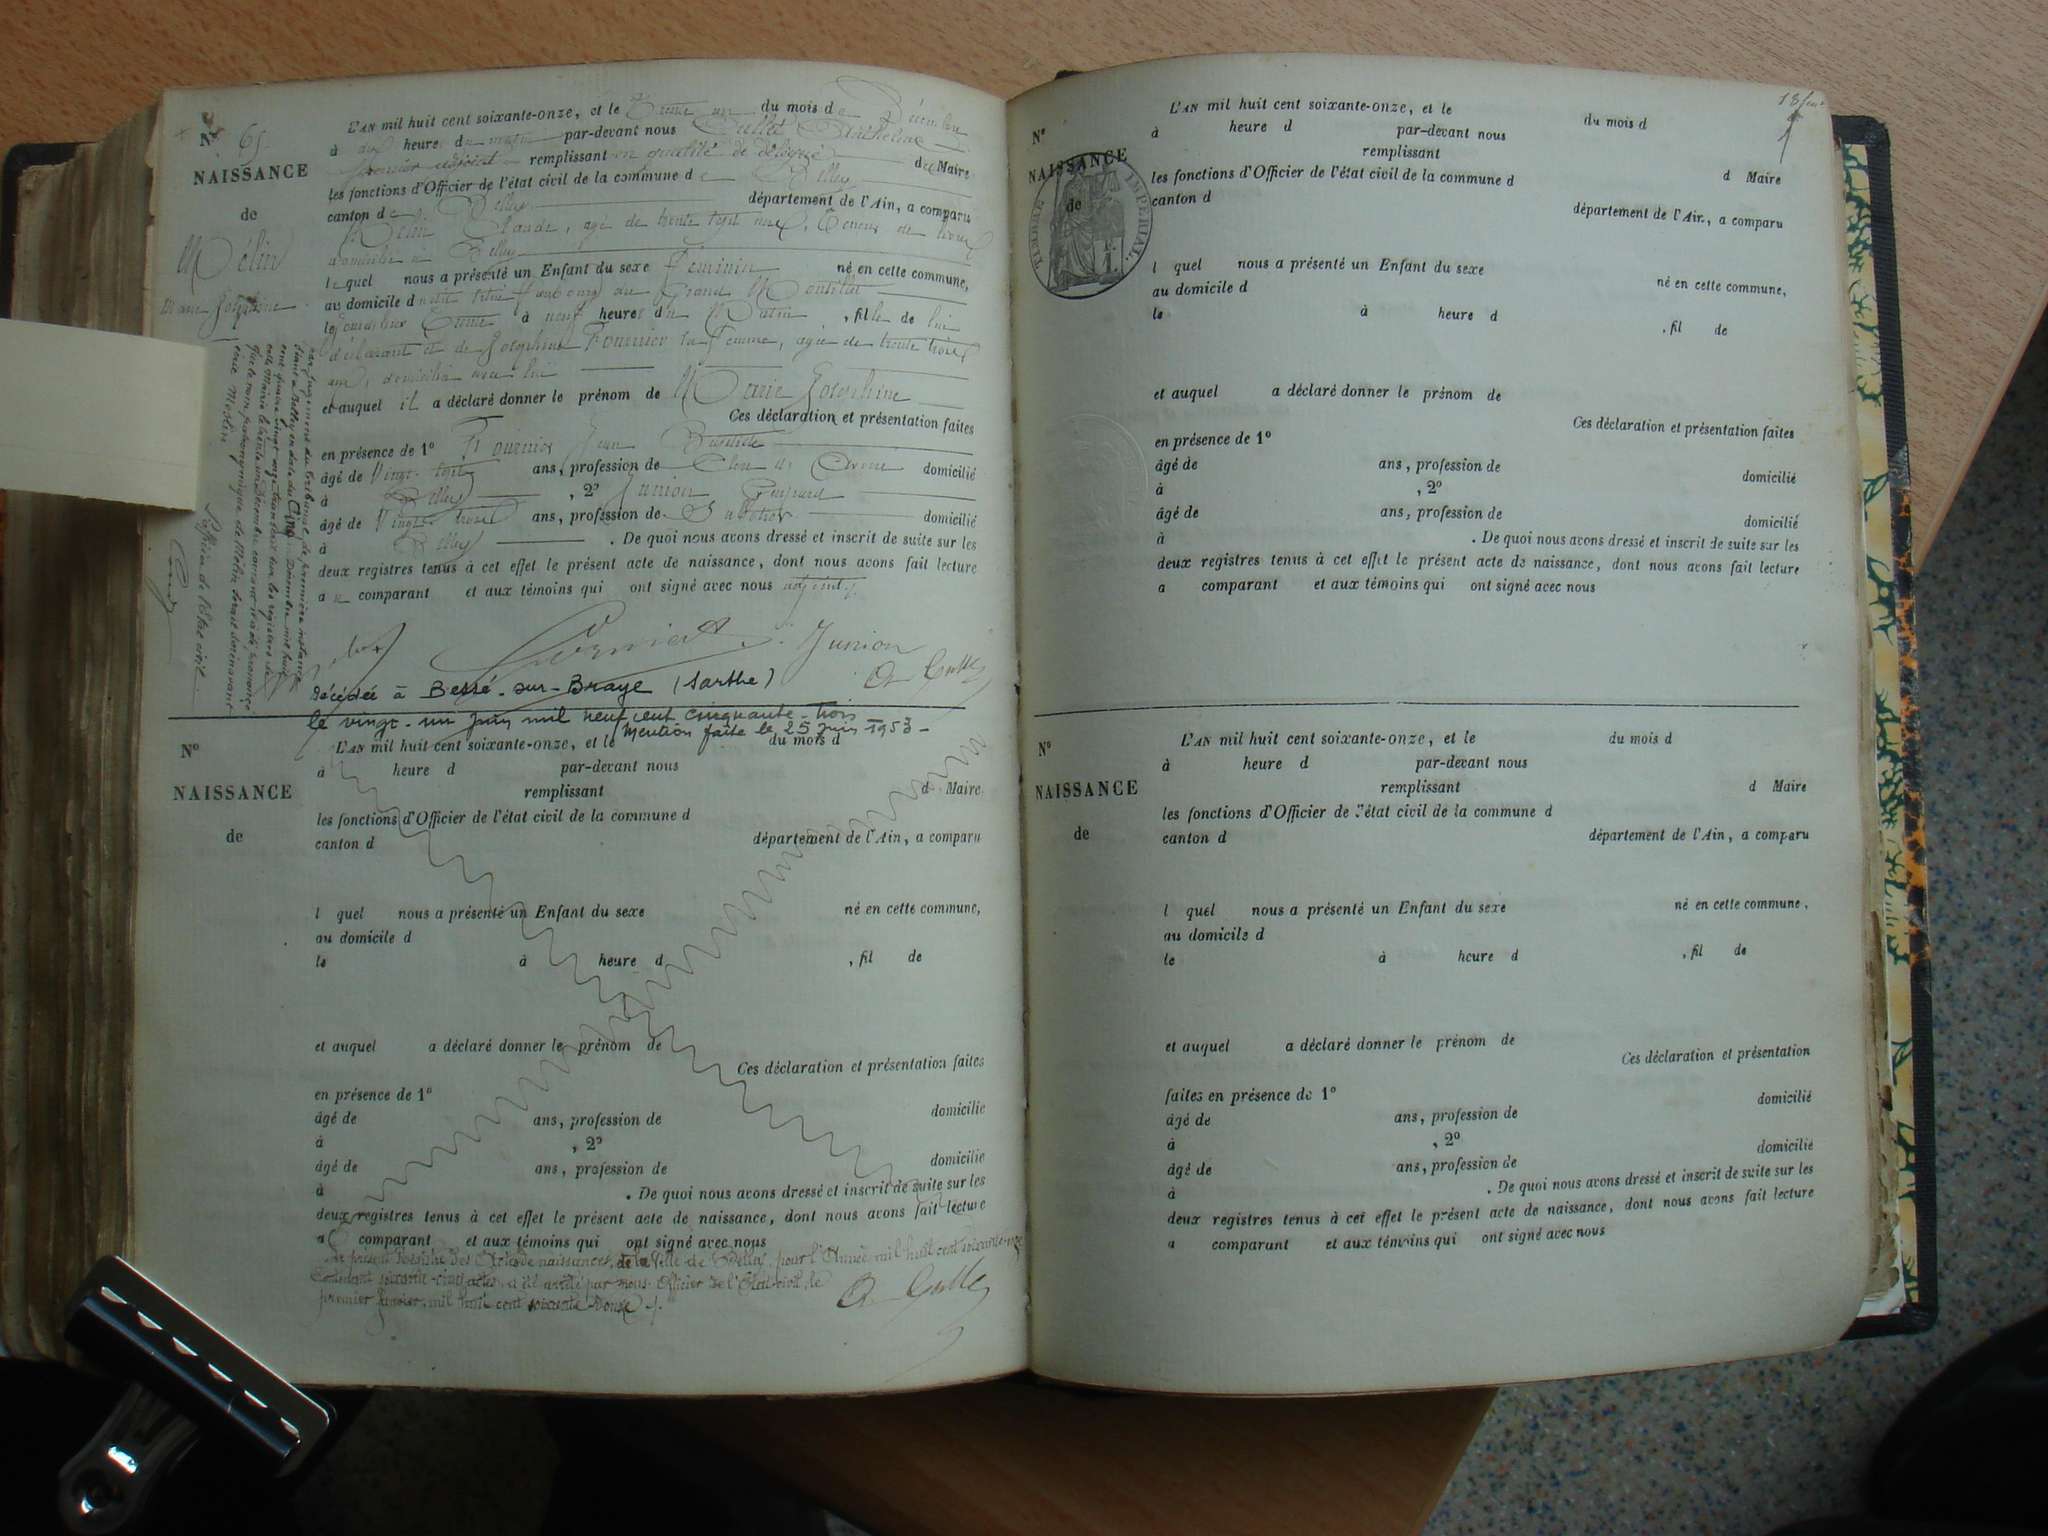 N° 65
NAISSANCE
de
Mélin
Marie Josephine
L'AN mil huit cent soixante-onze, et le Trente un du mois de Décembre
à dix heures du matin par-devant nous Cullet Anthelme
premier adjoint remplissant en qualité de délégué du Maire
les fonctions d'Officier de l'état civil de la commune de Belley
canton de Belley département de l'Ain, a comparu
Mélin Claude, agé de trente sept ans, Teneur de livres
domicilié à Belley
lequel nous a présenté un Enfant du sexe féminin né en cette commune,
au domicile du faubourg du Grand
le trente à neuf heures du Matin, fille de lui
déclarant et de Josephine Fournier sa femme, agée de trente trois
ans, domiciliée avec lui
et auquel il a déclaré donner le prénom de Marie Josephine
Ces déclaration et présentation faites
en présence de 1° Fournier Jean Baptiste
âgé de Vingt-sept ans, profession de domicilié
à Belley, 2° Junion Gaspard
âgé de Vingt-trois ans, profession de Sabotier domicilié
à Belley. De quoi nous avons dressé et inscrit de suite sur les
deux registres tenus à cet effet le présent acte de naissance, dont nous avons fait lecture
au comparant et aux témoins qui ont signé avec nous adjoint.
par jugement du tribunal de première instance
séant à Belley en date du Cinq Décembre mil huit
cent quatre vingt transcrit sur les registres de
cette Mairie le trente un Décembre courant il a été prononcé
que le nom patronymique de Mélin serait dorénavant
écrit Meslin
L'officier de l'état civil
Fournier Junion
A. Cullet
Décédée à Bessé-sur-Braye (Sarthe)
le vingt-un juin mil neuf cent cinquante-trois
Mention faite le 25 juin 1953-
N°
NAISSANCE
de
L'AN mil huit cent soixante-onze, et le du mois d
à heure d par-devant nous
remplissant d Maire
les fonctions d'Officier de l'état civil de la commune d
canton d département de l'Ain, a comparu
l quel nous a présenté un Enfant du sexe né en cette commune,
au domicile d
le à heure d , fil de
et auquel a déclaré donner le prénom de
Ces déclaration et présentation faites
en présence de 1°
âgé de ans, profession de domicilié
à , 2°
âgé de ans, profession de domicilié
à . De quoi nous avons dressé et inscrit de suite sur les
deux registres tenus à cet effet le présent acte de naissance, dont nous avons fait lecture
a comparant et aux témoins qui ont signé avec nous
Le présent Registre des Actes de naissances de la Ville de Belley, pour l'Année mil huit cent soixante-onze
Contenant soixante-cinq actes, a été arrêté par nous Officier de l'Etat-civil, le
premier Janvier mil huit cent soixante-Douze.
A. Cullet
N°
NAISSANCE
de
TIMBRE IMPERIAL.
L'AN mil huit cent soixante-onze, et le du mois d
à heure d par-devant nous
remplissant d Maire
les fonctions d'Officier de l'état civil de la commune d
canton d département de l'Ain, a comparu
l quel nous a présenté un Enfant du sexe né en cette commune,
au domicile d
le à heure d , fil de
et auquel a déclaré donner le prénom de
Ces déclaration et présentation faites
en présence de 1°
âgé de ans, profession de domicilié
à , 2°
âgé de ans, profession de domicilié
à . De quoi nous avons dressé et inscrit de suite sur les
deux registres tenus à cet effet le présent acte de naissance, dont nous avons fait lecture
a comparant et aux témoins qui ont signé avec nous
N°
NAISSANCE
de
L'AN mil huit cent soixante-onze, et le du mois d
à heure d par-devant nous
remplissant d Maire
les fonctions d'Officier de l'état civil de la commune d
canton d département de l'Ain, a comparu
l quel nous a présenté un Enfant du sexe né en cette commune,
au domicile d
le à heure d , fil de
et auquel a déclaré donner le prénom de
Ces déclaration et présentation
faites en présence de 1°
âgé de ans, profession de domicilié
à , 2°
âgé de ans, profession de domicilié
à . De quoi nous avons dressé et inscrit de suite sur les
deux registres tenus à cet effet le présent acte de naissance, dont nous avons fait lecture
a comparant et aux témoins qui ont signé avec nous